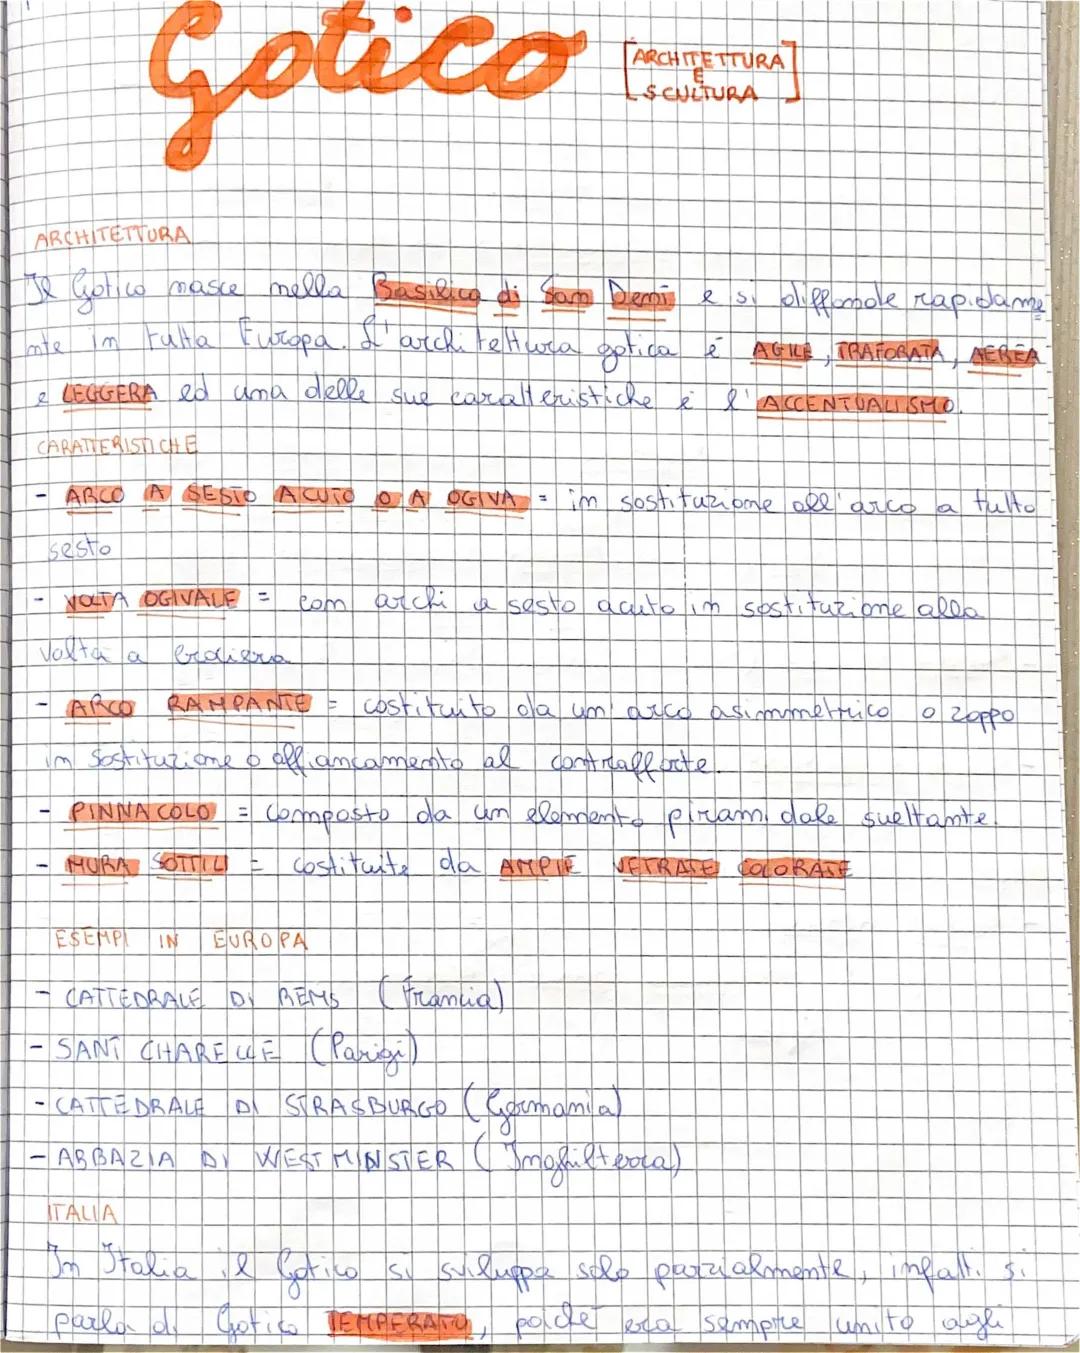 Gotico
[ARCHITETTURA
E
SCULTURA]
ARCHITETTURA
Il Gotico nasce nella Basilica di San Deni e si diffonde rapidame
nte in tutta Europa. L'architettura gotica è AGILE, TRAFORATA, AEREA
e LEGGERA ed una delle sue caratteristiche è l'ACCENTUALISMO.
CARATTERISTICHE
- ARCO A SESTO ACUTO O A OGIVA = in sostituzione all'arco a tutto
sesto
- VOLTA OGIVALE = con archi a sesto acuto in sostituzione alla
volta a crociera
- ARCO RAMPANTE = costituito da un arco asimmetrico o zoppo
in sostituzione o affiancamento al contrafforte.
- PINNACOLO = composto da un elemento piramidale sveltante.
- MURA SOTTILI = costituite da AMPIE VETRATE COLORATE
ESEMPI IN EUROPA
- CATTEDRALE DI REMS (Francia)
- SANT CHAPELLE (Parigi)
- CATTEDRALE DI STRASBURGO (Germania)
- ABBAZIA DI WESTMINSTER (Inghilterra)
ITALIA
In Italia il Gotico si sviluppa solo parzialmente, infatti si
parla di Gotico TEMPERATO, poiché era sempre unito agli